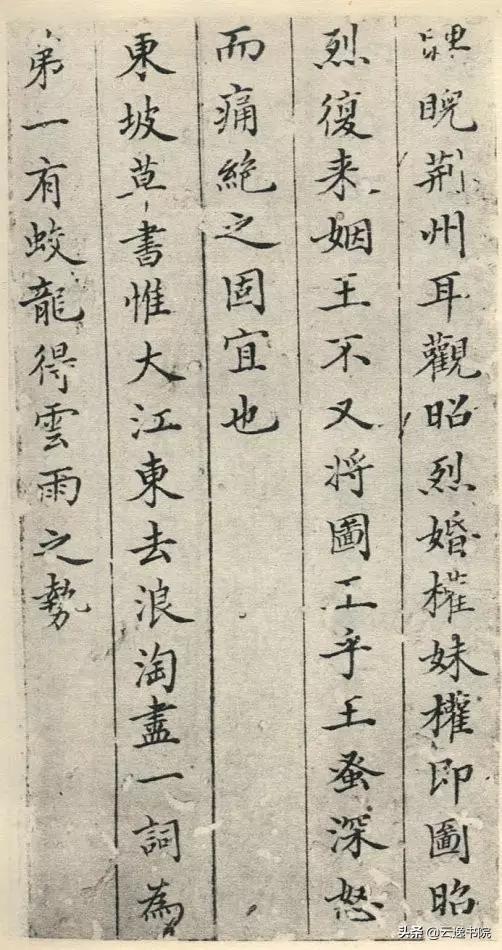 睨荊州耳觀昭烈婚權妹權即圖昭
烈復来姻王不又将圖王乎王蚤深怒
而痛絶之固宜也
東坡草書惟大江東去浪淘盡一詞為
弟一有蛟龍得雲雨之勢
头条 @云逸书院